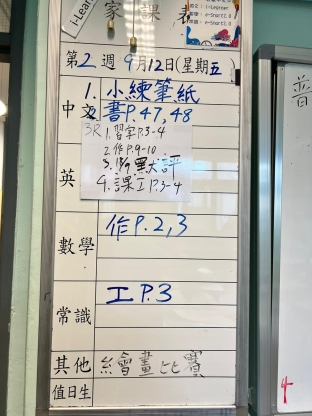 i-Learn
家課表
第2週 9月12日(星期五)
中文
1. 小練筆紙
2. 書P.47,48
3R 1. 習字P.3-4
2. 作P.9-10
3. 18/9 默評
4. 課工P.3-4
英
數學
作P.2,3
常識
工P.3
其他
繪畫比賽
值日生
4